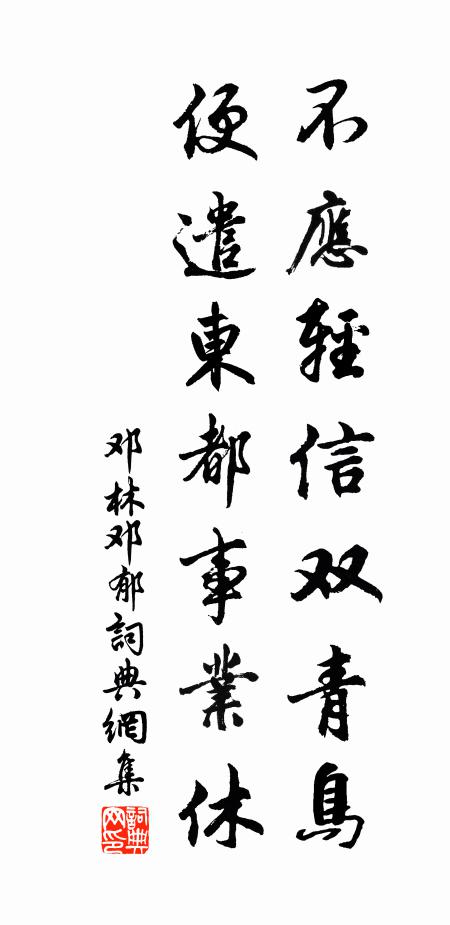 不應輕信双青鳥
便遣東都事業休
邓林邓郁詞典網集
詞典网印